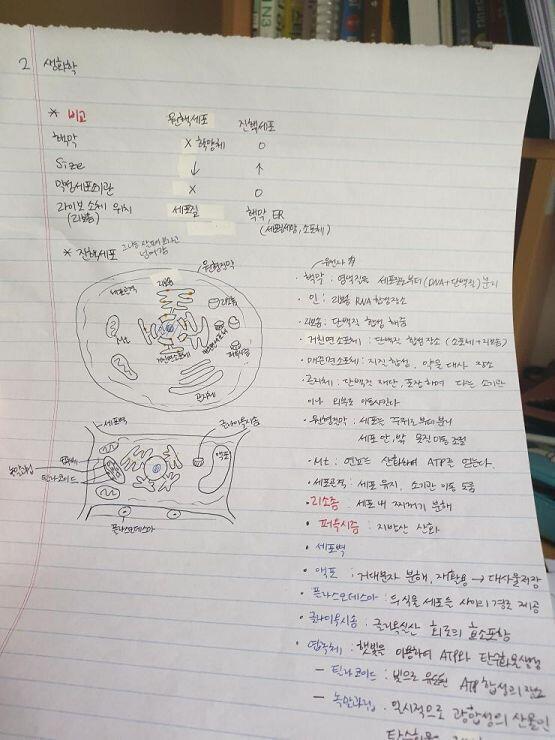 2 생화학
* 비교 원핵세포 진핵세포
핵막 X 핵양체 O
Size ↓ ↑
막성세포소기관 X O
라이보솜체 위치 세포질 핵막, ER
(리보솜) (세포질, 소포체)
* 진핵세포
세포골격 리보솜 원형질막
리소좀
Mt
거친면소포체
퍼옥시좀
골지체
세포벽 글라이옥시솜
녹말과립 엽록체 액포
틸라코이드
플라스모데스마
유전자
· 핵막 : 염색질을 세포질로부터 (DNA+단백질) 분리
· 인 : 리보솜 RNA 합성장소
· 리보솜 : 단백질 합성 해줌
· 거친면소포체 : 단백질 합성 장소 (소포체+리보솜)
· 매끈면소포체 : 지질 합성, 약물 대사 장소
· 골지체 : 단백질 재단, 포장하여 다른 소기관
이나 외부로 이동시킨다
· 원형질막 : 세포를 주위로부터 분리
세포 안, 밖 물질 이동 조절
· Mt : 연료를 산화하여 ATP를 만든다.
· 세포골격 : 세포 유지, 소기관 이동 도움
· 리소좀 : 세포 내 찌꺼기 분해
· 퍼옥시좀 : 지방산 산화
· 세포벽
· 액포 : 거대분자 분해, 재활용 → 대사물저장
· 플라스모데스마 : 두 식물 세포들 사이의 경로 제공
· 글라이옥시솜 : 글리옥실산 회로의 효소포함
· 엽록체 : 햇빛을 이용하여 ATP와 탄수화물생성
- 틸라코이드 : 빛으로 유도된 ATP 합성의 장소
- 녹말과립 : 일시적으로 광합성의 산물인
탄수화물